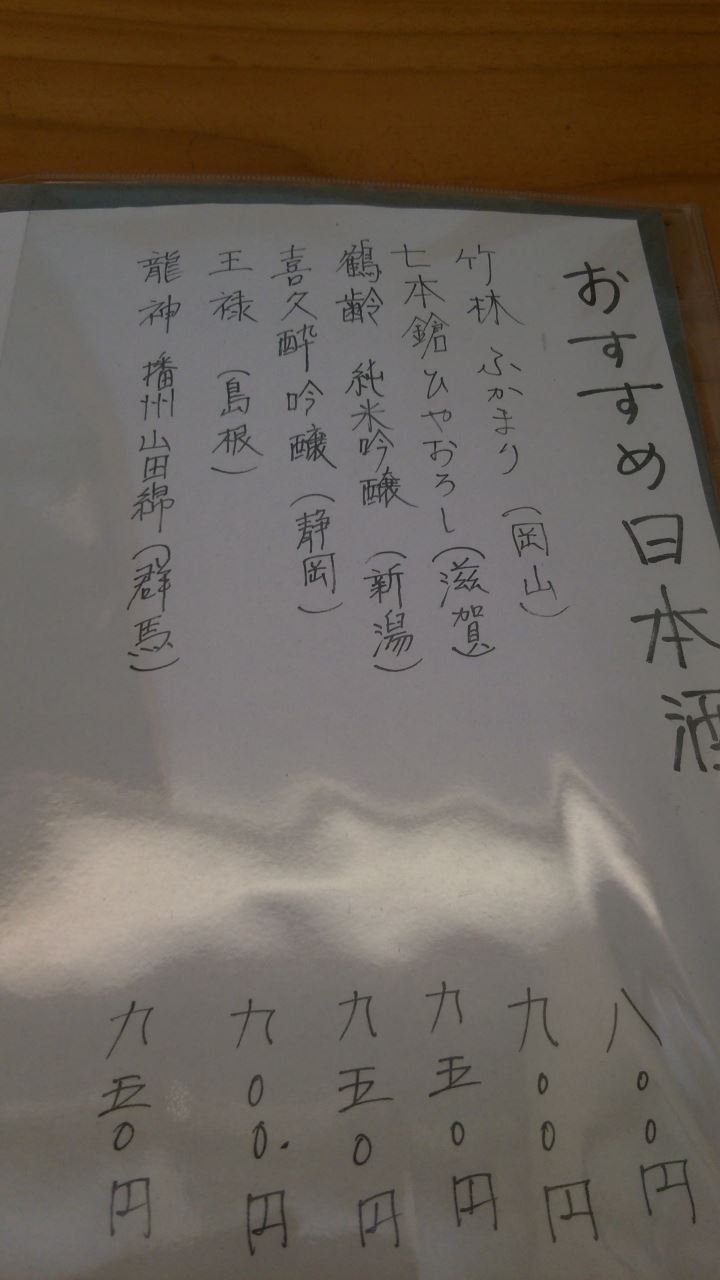 おすすめ日本酒
竹林 ふかまり (岡山) 八〇〇円
七本鎗 ひやおろし (滋賀) 九〇〇円
鶴齢 純米吟醸 (新潟) 九五〇円
喜久酔 吟醸 (静岡) 九五〇円
王禄 (島根) 九〇〇円
龍神 播州山田錦 (群馬) 九五〇円